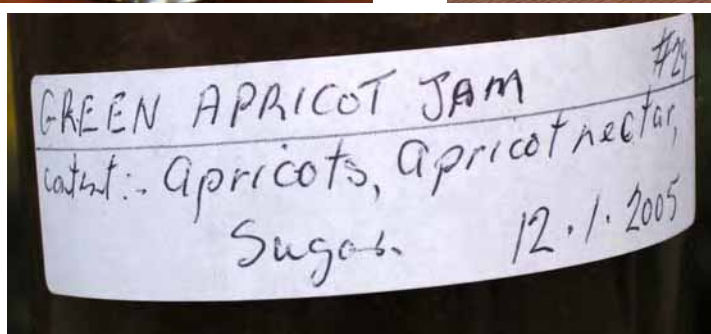 GREEN APRICOT JAM #29
content:- Apricots, Apricot nectar,
Sugar. 12.1.2005